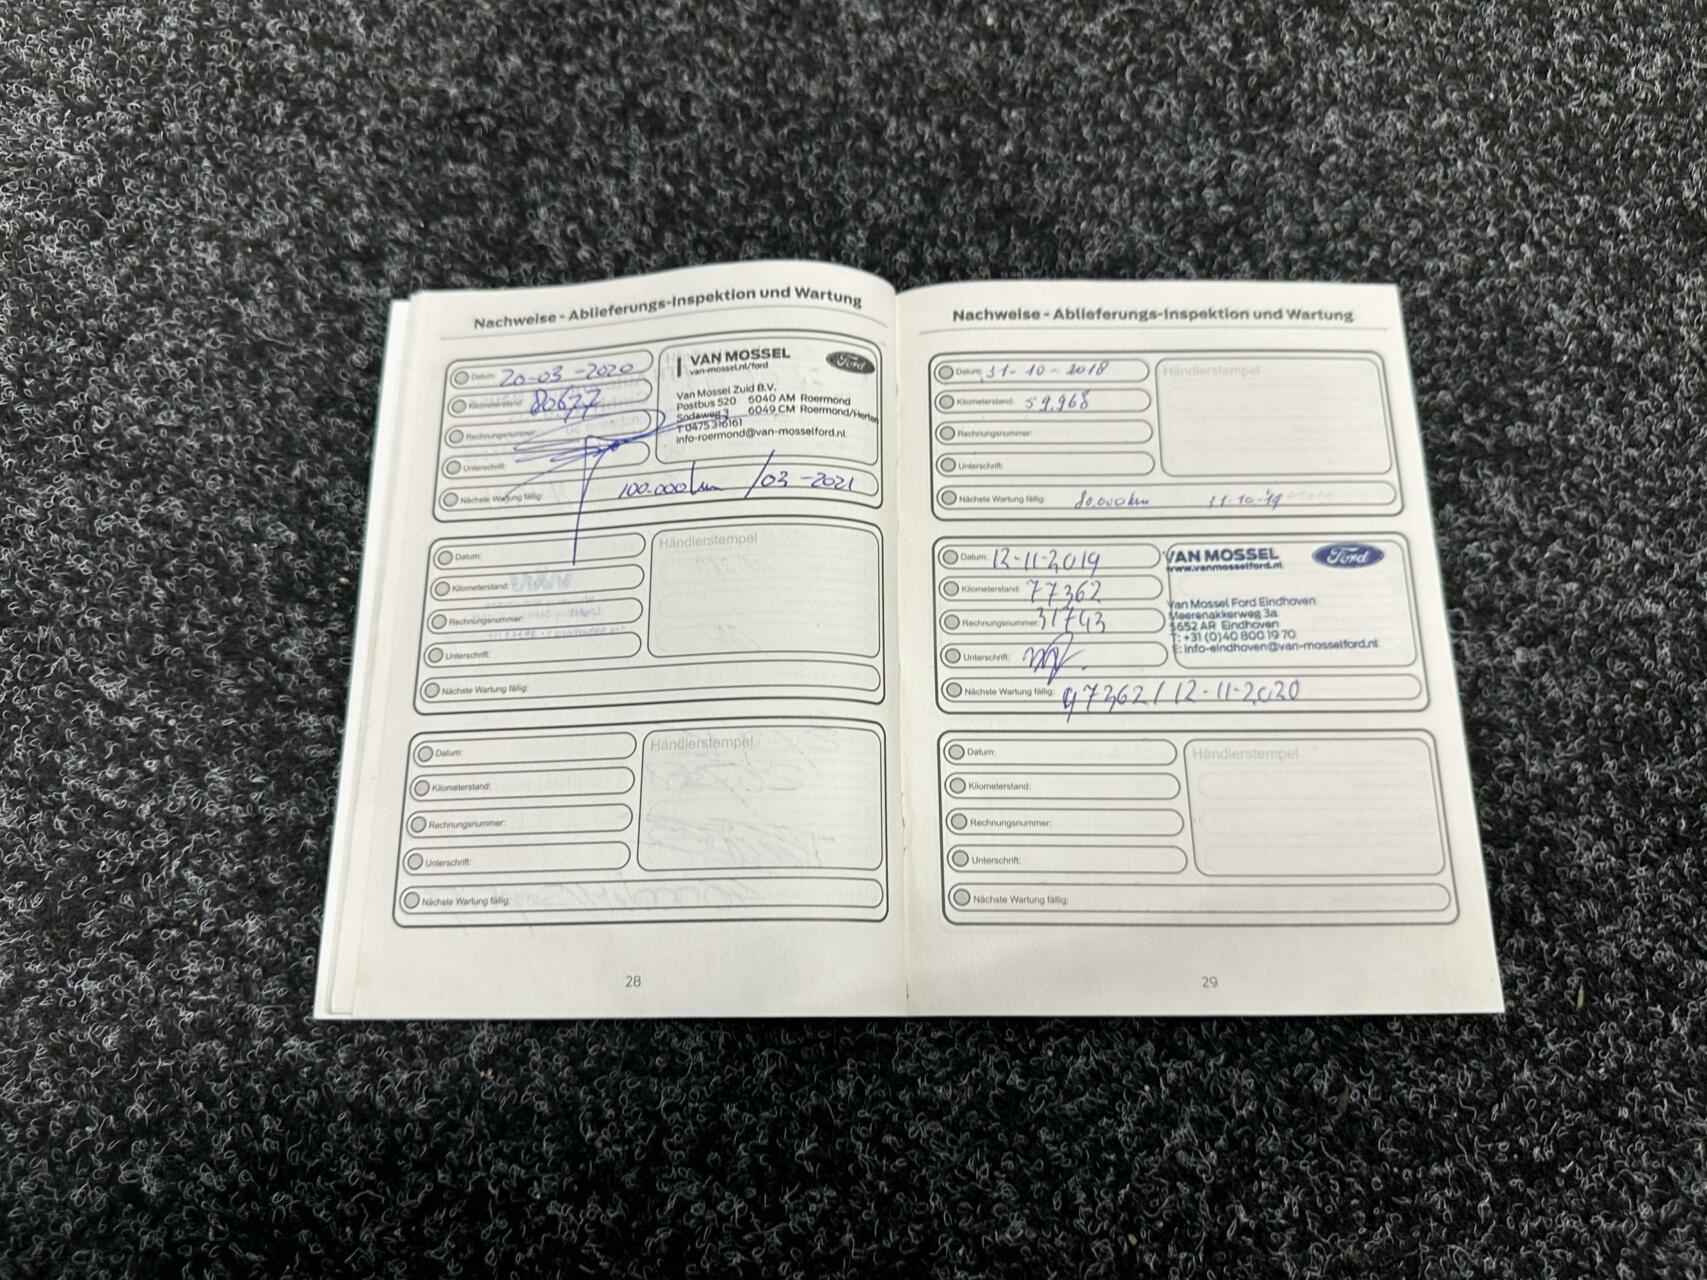 Nachweise - Ablieferungs-Inspektion und Wartung
Datum: 20-03-2020
Kilometerstand: 80677
Rechnungsnummer:
Unterschrift:
VAN MOSSEL
van-mossel.nl/ford
Ford
Van Mossel Zuid B.V.
Postbus 520 6040 AM Roermond
Sodaweg 3 6049 CM Roermond/Herten
T 0475 316161
info-roermond@van-mosselford.nl
Nächste Wartung fällig: 100.000 km / 03-2021
Datum:
Kilometerstand:
Rechnungsnummer:
Unterschrift:
Händlerstempel
Nächste Wartung fällig:
Datum:
Kilometerstand:
Rechnungsnummer:
Unterschrift:
Händlerstempel
Nächste Wartung fällig:
28
Nachweise - Ablieferungs-Inspektion und Wartung
Datum: 31-10-2018
Kilometerstand: 59.968
Rechnungsnummer:
Unterschrift:
Händlerstempel
Nächste Wartung fällig: 80.000 km 31-10-'19
Datum: 12-11-2019
Kilometerstand: 77362
Rechnungsnummer: 31743
Unterschrift:
VAN MOSSEL
www.vanmosselford.nl
Ford
Van Mossel Ford Eindhoven
Meerenakkerweg 3a
5652 AR Eindhoven
T: +31 (0)40 800 19 70
E: info-eindhoven@van-mosselford.nl
Nächste Wartung fällig: 97362 / 12-11-2020
Datum:
Kilometerstand:
Rechnungsnummer:
Unterschrift:
Händlerstempel
Nächste Wartung fällig:
29